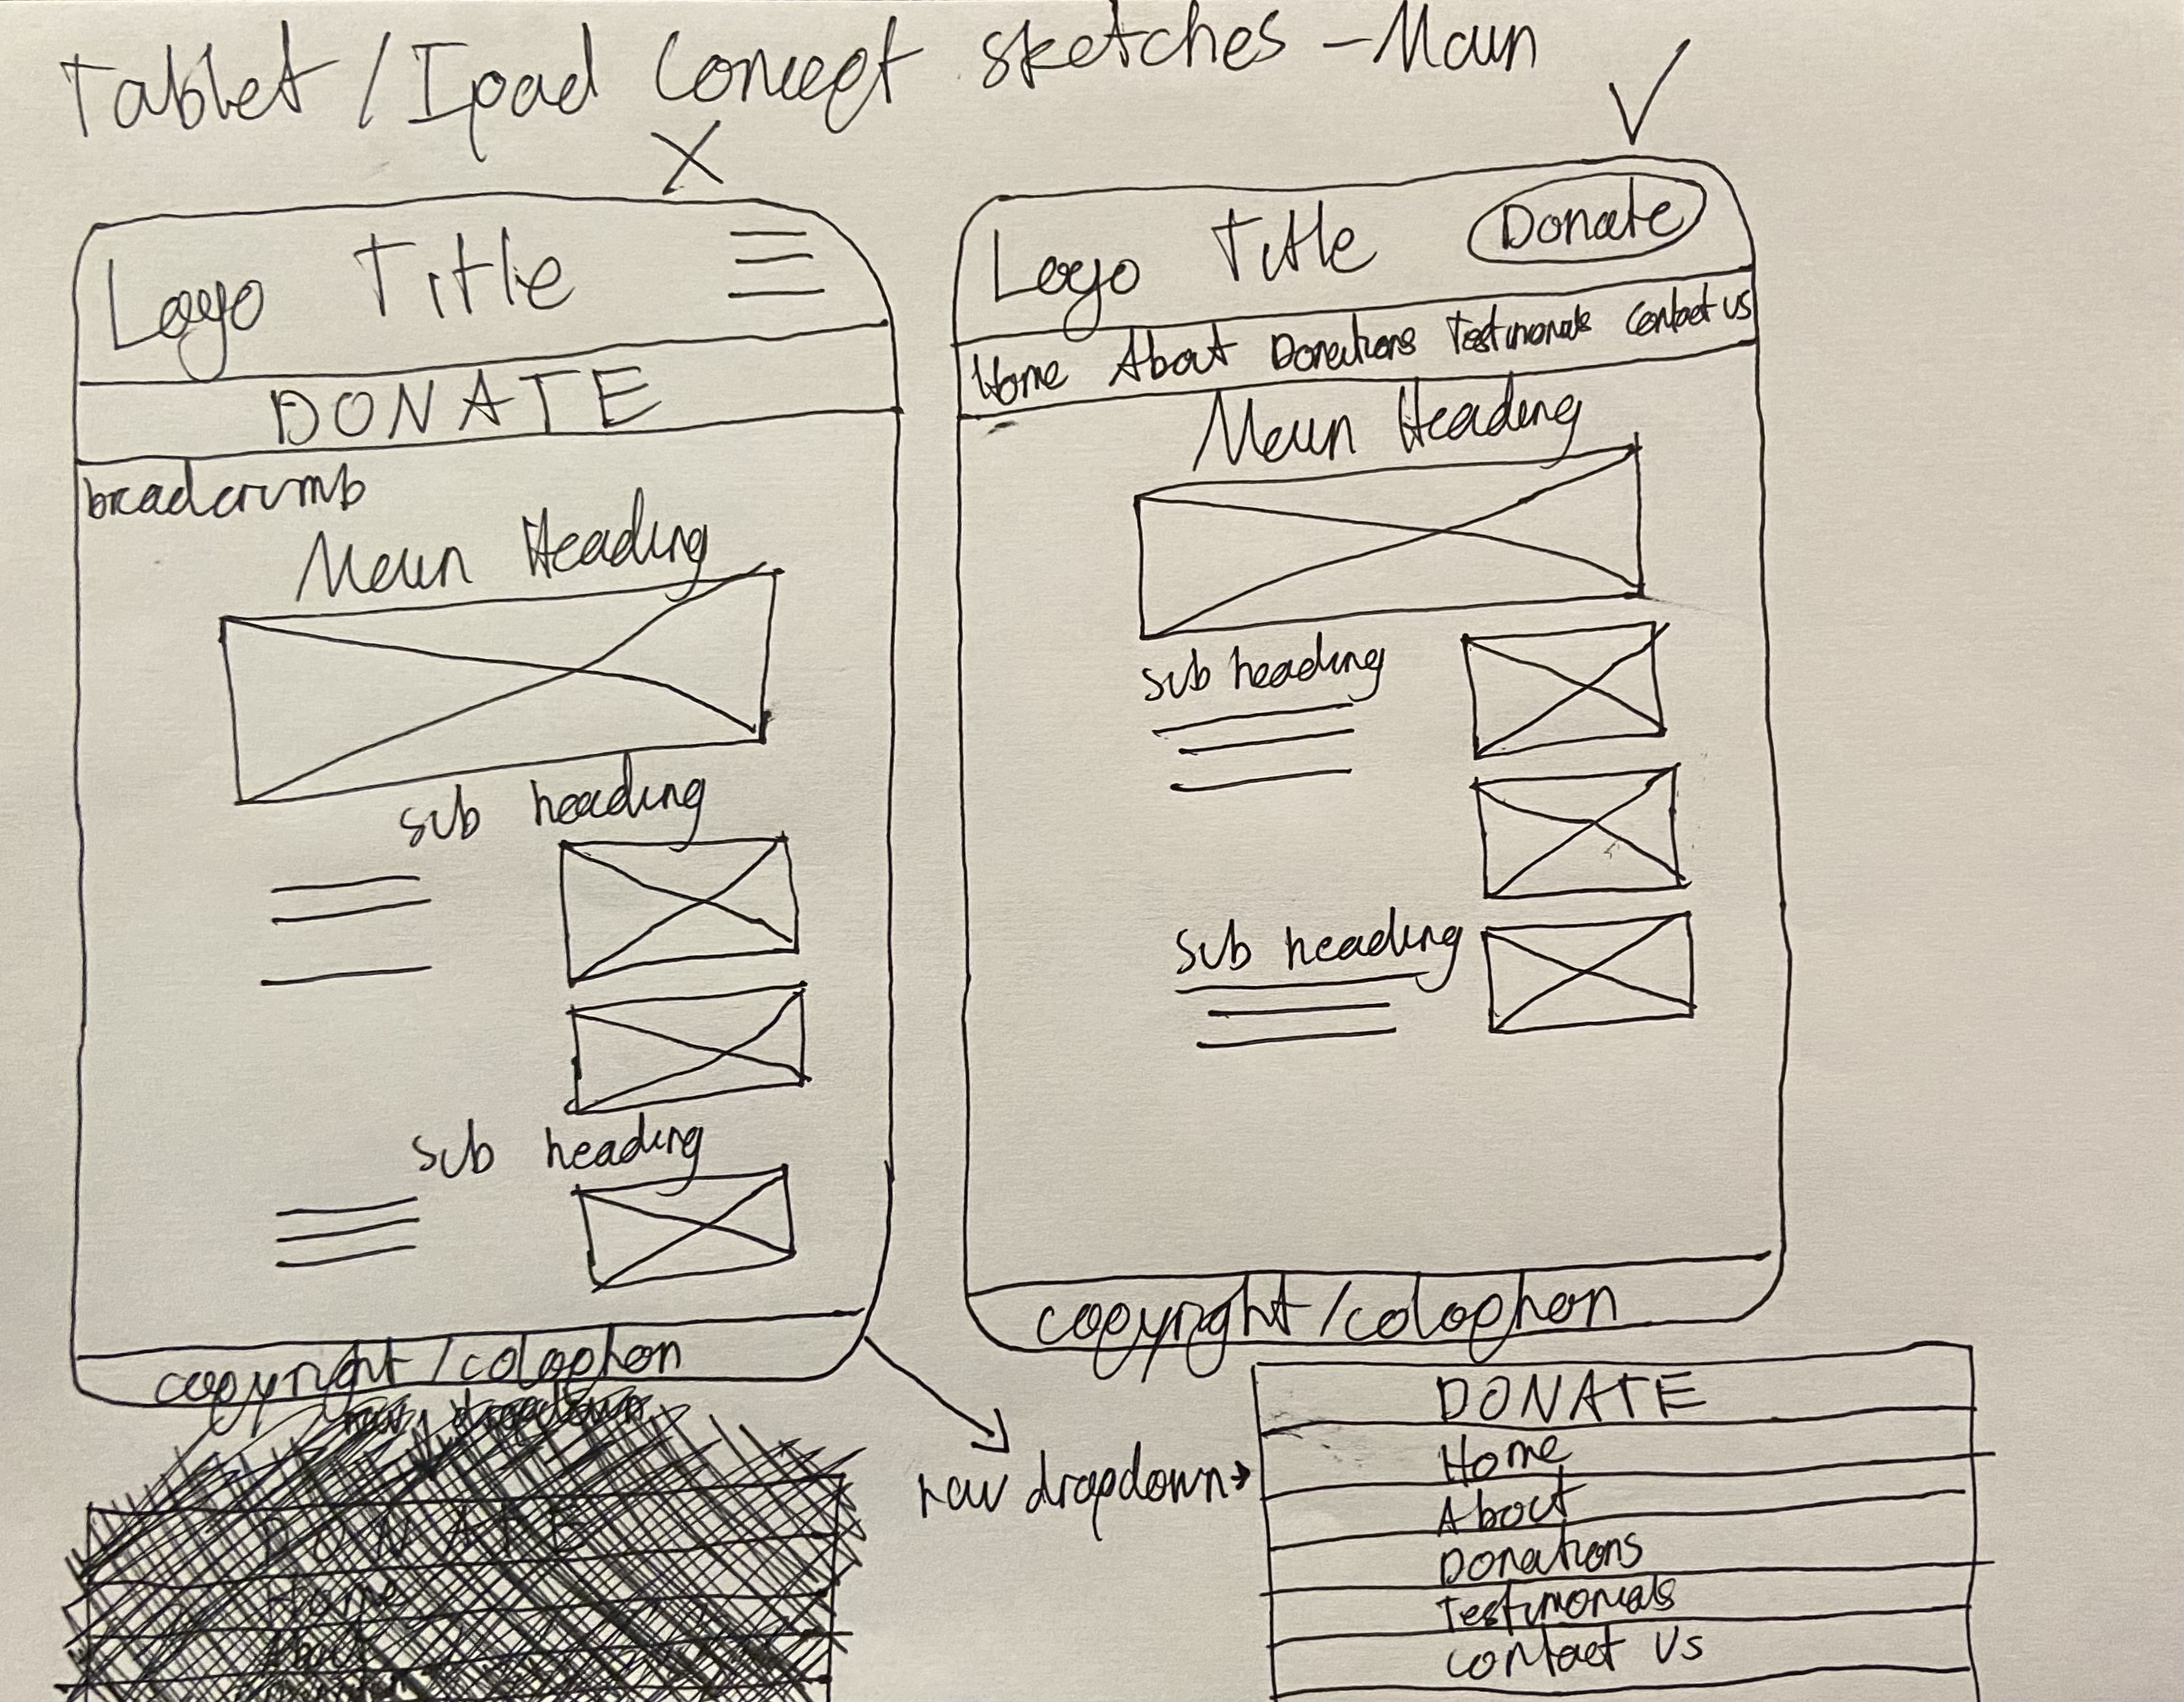 Tablet / Ipad Concept sketches - Main
X
✓
Logo Title
DONATE
breadcrumb
Main Heading
sub heading
sub heading
copyright / colophon
nav dropdown
DONATE
Home
About
Logo Title Donate
Home About Donations Testimonials Contact Us
Main Heading
sub heading
sub heading
copyright / colophon
nav dropdown
DONATE
Home
About
Donations
Testimonials
Contact Us